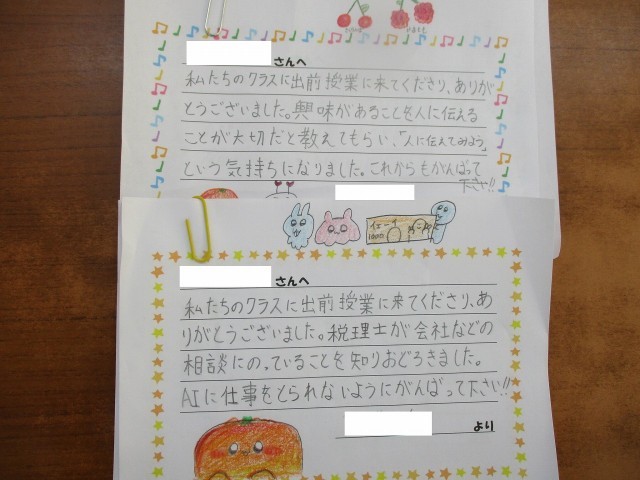 さんへ
私たちのクラスに出前授業に来てくださり、ありが
とうございました。興味があることを人に伝える
ことが大切だと教えてもらい、「人に伝えてみよう」
という気持ちになりました。これからもがんばって
下さい!!
さんへ
私たちのクラスに出前授業に来てくださり、あ
りがとうございました。税理士が会社などの
相談にのっていることを知りおどろきました。
AIに仕事をとられないようにがんばって下さい!!
より